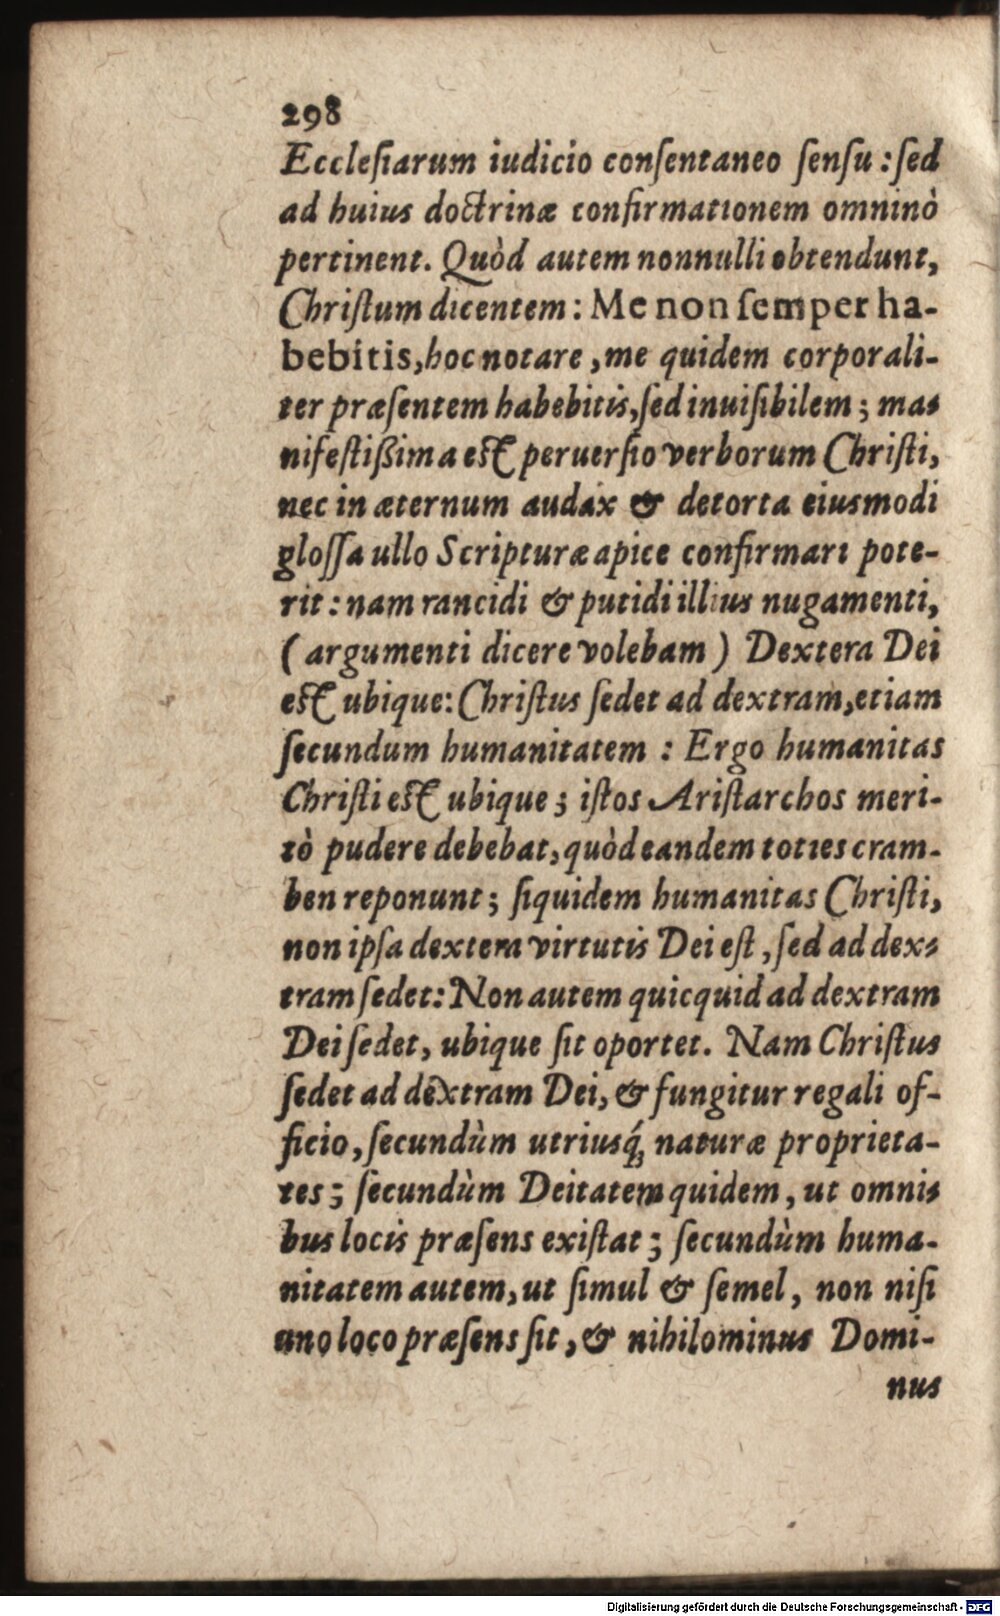 298
Eccleſiarum iudicio conſentaneo ſenſu : ſed
ad huius doctrinæ confirmationem omninò
pertinent. Quòd autem nonnulli obtendunt,
Chriſtum dicentem : Me non ſemper ha-
bebitis, hoc notare , me quidem corporali-
ter præſentem habebitis, ſed inuiſibilem ; ma-
nifeſtißima est peruerſio verborum Chriſti,
nec in æternum audax & detorta eiusmodi
gloſſa ullo Scripturæ apice confirmari pote-
rit : nam rancidi & putidi illius nugamenti,
( argumenti dicere volebam ) Dextera Dei
est ubique: Chriſtus ſedet ad dextram, etiam
ſecundum humanitatem : Ergo humanitas
Chriſti est ubique ; iſtos Ariſtarchos meri-
tò pudere debebat, quòd eandem toties cram-
ben reponunt ; ſiquidem humanitas Chriſti,
non ipſa dextera virtutis Dei eſt , ſed ad dex-
tram ſedet: Non autem quicquid ad dextram
Dei ſedet, ubique ſit oportet. Nam Chriſtus
ſedet ad dextram Dei, & fungitur regali of-
ficio, ſecundùm utriusq́; naturæ proprieta-
tes ; ſecundùm Deitatem quidem, ut omni-
bus locis præſens exiſtat ; ſecundùm huma-
nitatem autem, ut ſimul & ſemel, non niſi
uno loco præſens ſit , & nihilominus Domi-
nus
Digitalisierung gefördert durch die Deutsche Forschungsgemeinschaft - DFG